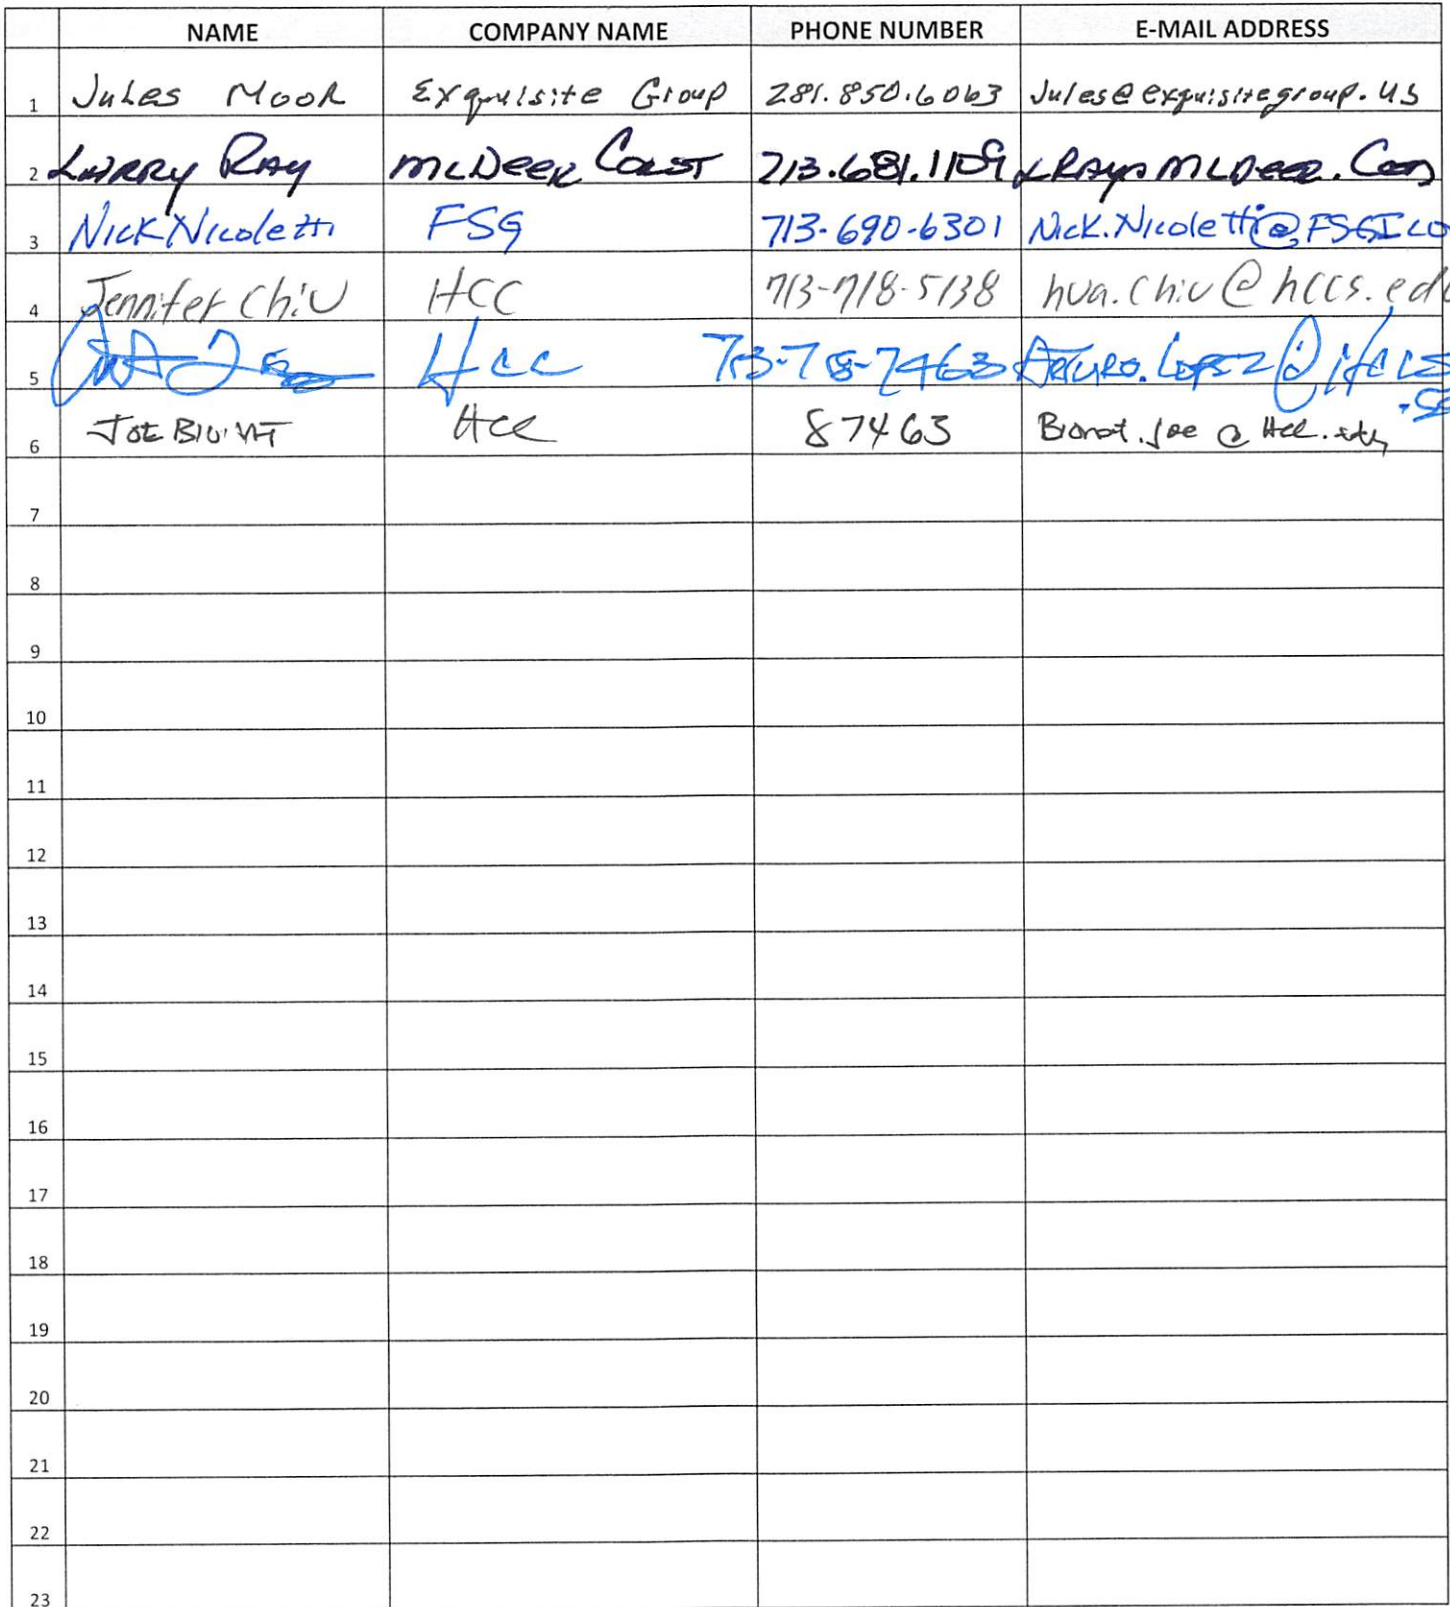 NAME COMPANY NAME PHONE NUMBER E-MAIL ADDRESS
1 Jules Moor Exquisite Group 281.850.6063 Jules@exquisitegroup.us
2 LARRY RAY MCDEER CONST 713.681.1109 LRAY@MCDEER.COM
3 Nick Nicoletti FSG 713-690-6301 Nick.Nicoletti@FSGI.CO
4 Jennifer Chiu HCC 713-718-5138 hua.chiu@hccs.edu
5 HCC 713-718-7463 ARTURO.LOPEZ@HCCS
6 JOE HCC 87463
7
8
9
10
11
12
13
14
15
16
17
18
19
20
21
22
23